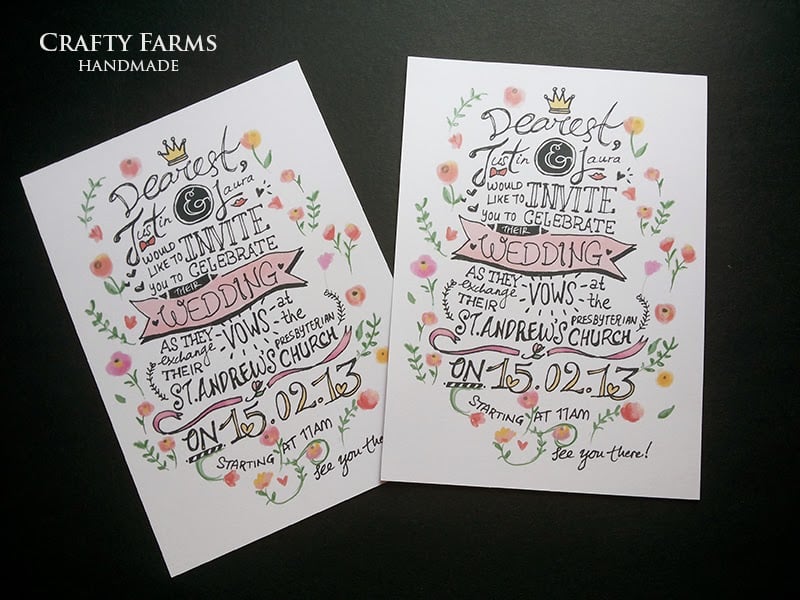 CRAFTY FARMS
HANDMADE
Dearest,
Justin & Laura
WOULD LIKE TO INVITE
YOU TO CELEBRATE
THEIR
WEDDING
AS THEY exchange THEIR VOWS at the
ST. ANDREW'S PRESBYTERIAN CHURCH
ON 15.02.13
STARTING AT 11AM
see you the
Dearest,
Justin & Laura
WOULD LIKE TO INVITE
YOU TO CELEBRATE
THEIR
WEDDING
AS THEY exchange THEIR VOWS at the
ST. ANDREW'S PRESBYTERIAN CHURCH
ON 15.02.13
STARTING AT 11AM
see you there!